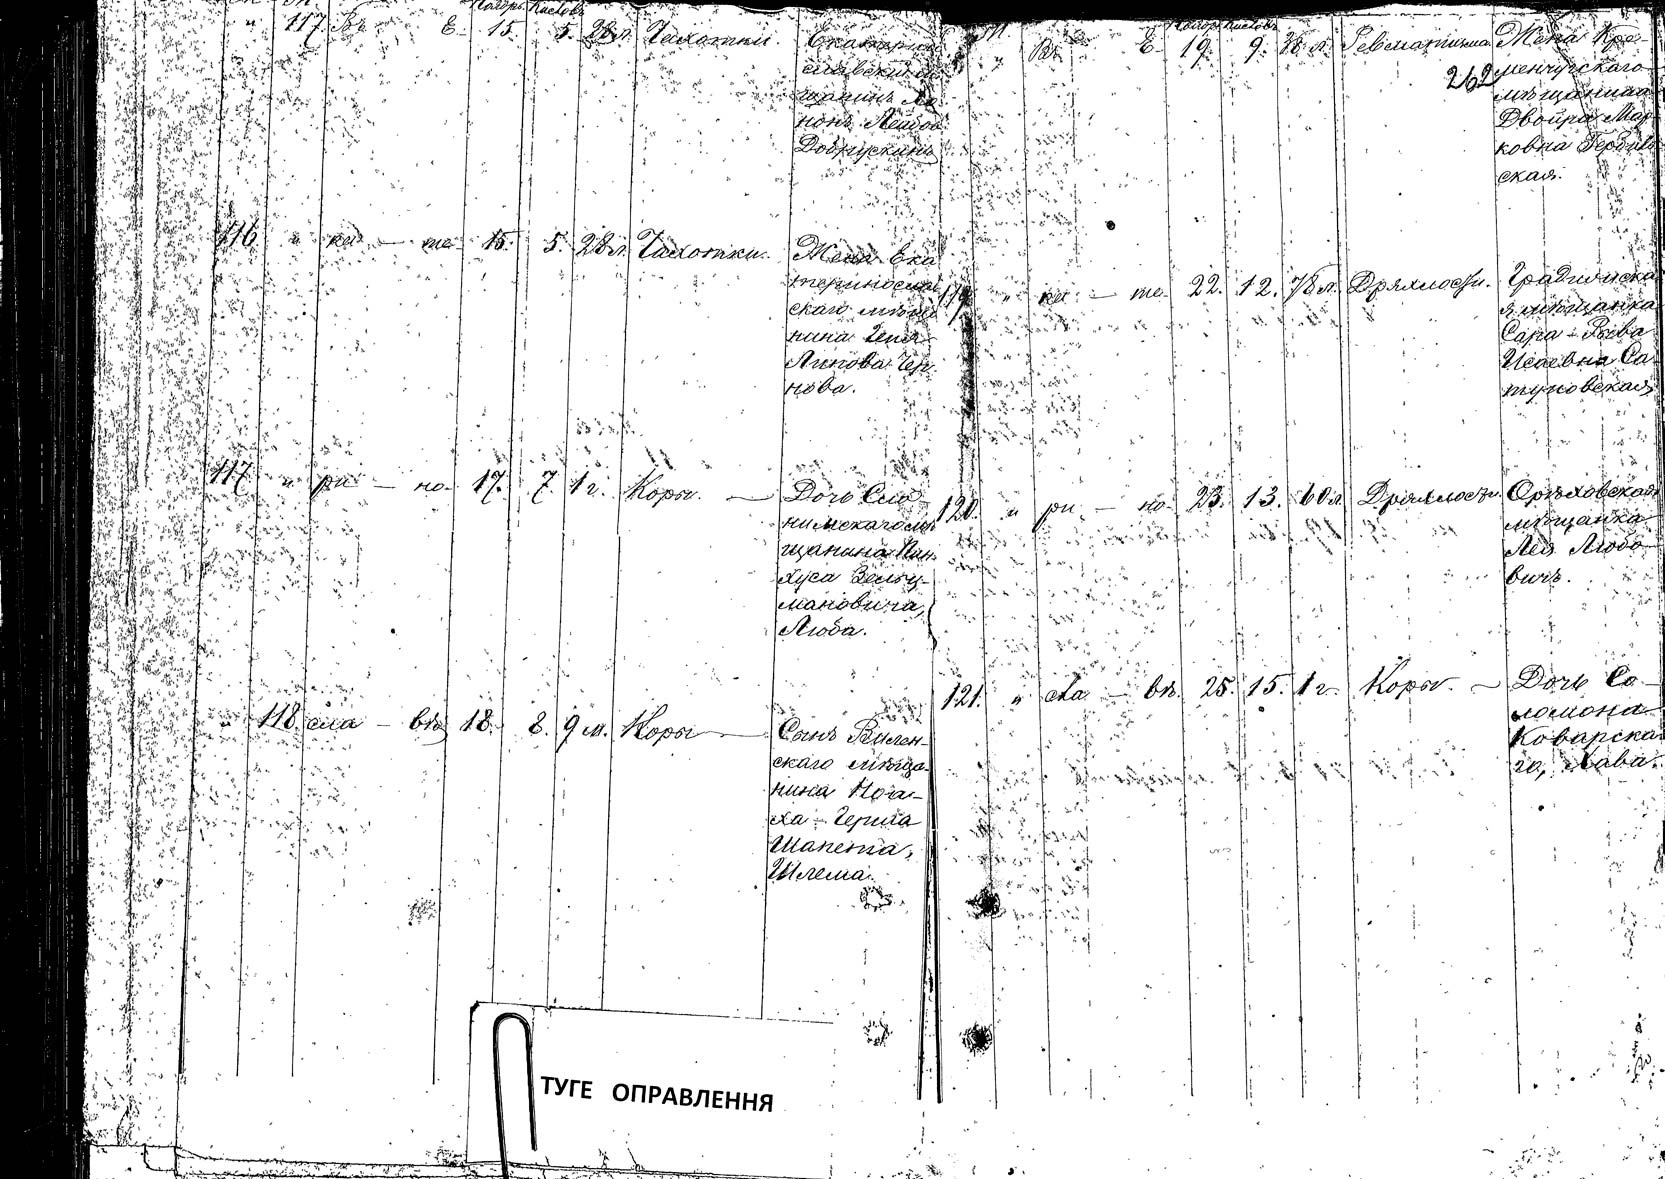 Ноябр. Кислевъ
" 117 Въ Е. 15. 5. 28 л. Чахотки. Екатерино-
славскій мѣ-
щанинъ Ха-
нонъ Лейбов
Добрускинъ
116 " ка — те 15. 5. 28 л. Чахотки. Жена Ека
териносла
скаго мѣща
нина Геня
Липова Чер
нова.
117 " ри — но. 17. 7. 1 г. Кори. — Дочь Сло-
нимскаго мѣ
щанина Пин-
хуса Зельц-
мановича,
Люба.
" 118 сла — въ 18. 8. 9 м. Кори — Сынъ Вилен-
скаго мѣща-
нина Ноа-
ха-Герша
Шапета,
Шлема.
Ноябр. Кислевъ
" Въ Е. 19. 9. 38 л. Ревматизма Жена Кре-
262
менчугскаго
мѣщанина
Двойра Мар-
ковна
ская.
119 " ка — те. 22. 12. 78 л. Дряхлости. Градижска
я мѣщанка
Сара-Рыва
Исаевна Са-
туновская
120. " ри — но. 23. 13. 60 л. Дряхлости. Орѣховская
мѣщанка
Лея Любо-
вичъ.
121. " сла — въ. 25. 15. 1 г. Кори. — Дочь Со-
ломона
Коварска-
го, Хава.
ТУГЕ ОПРАВЛЕННЯ